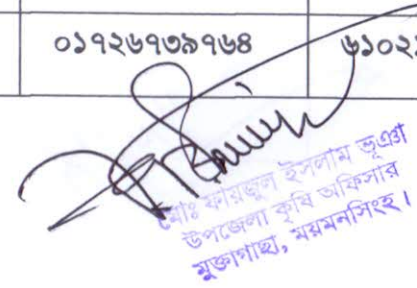 ০১৭২৬৭৩৯৭৬৪ ৬১০২
মোঃ ফায়জুল ইসলাম ভূঞা
উপজেলা কৃষি অফিসার
মুক্তাগাছা, ময়মনসিংহ।